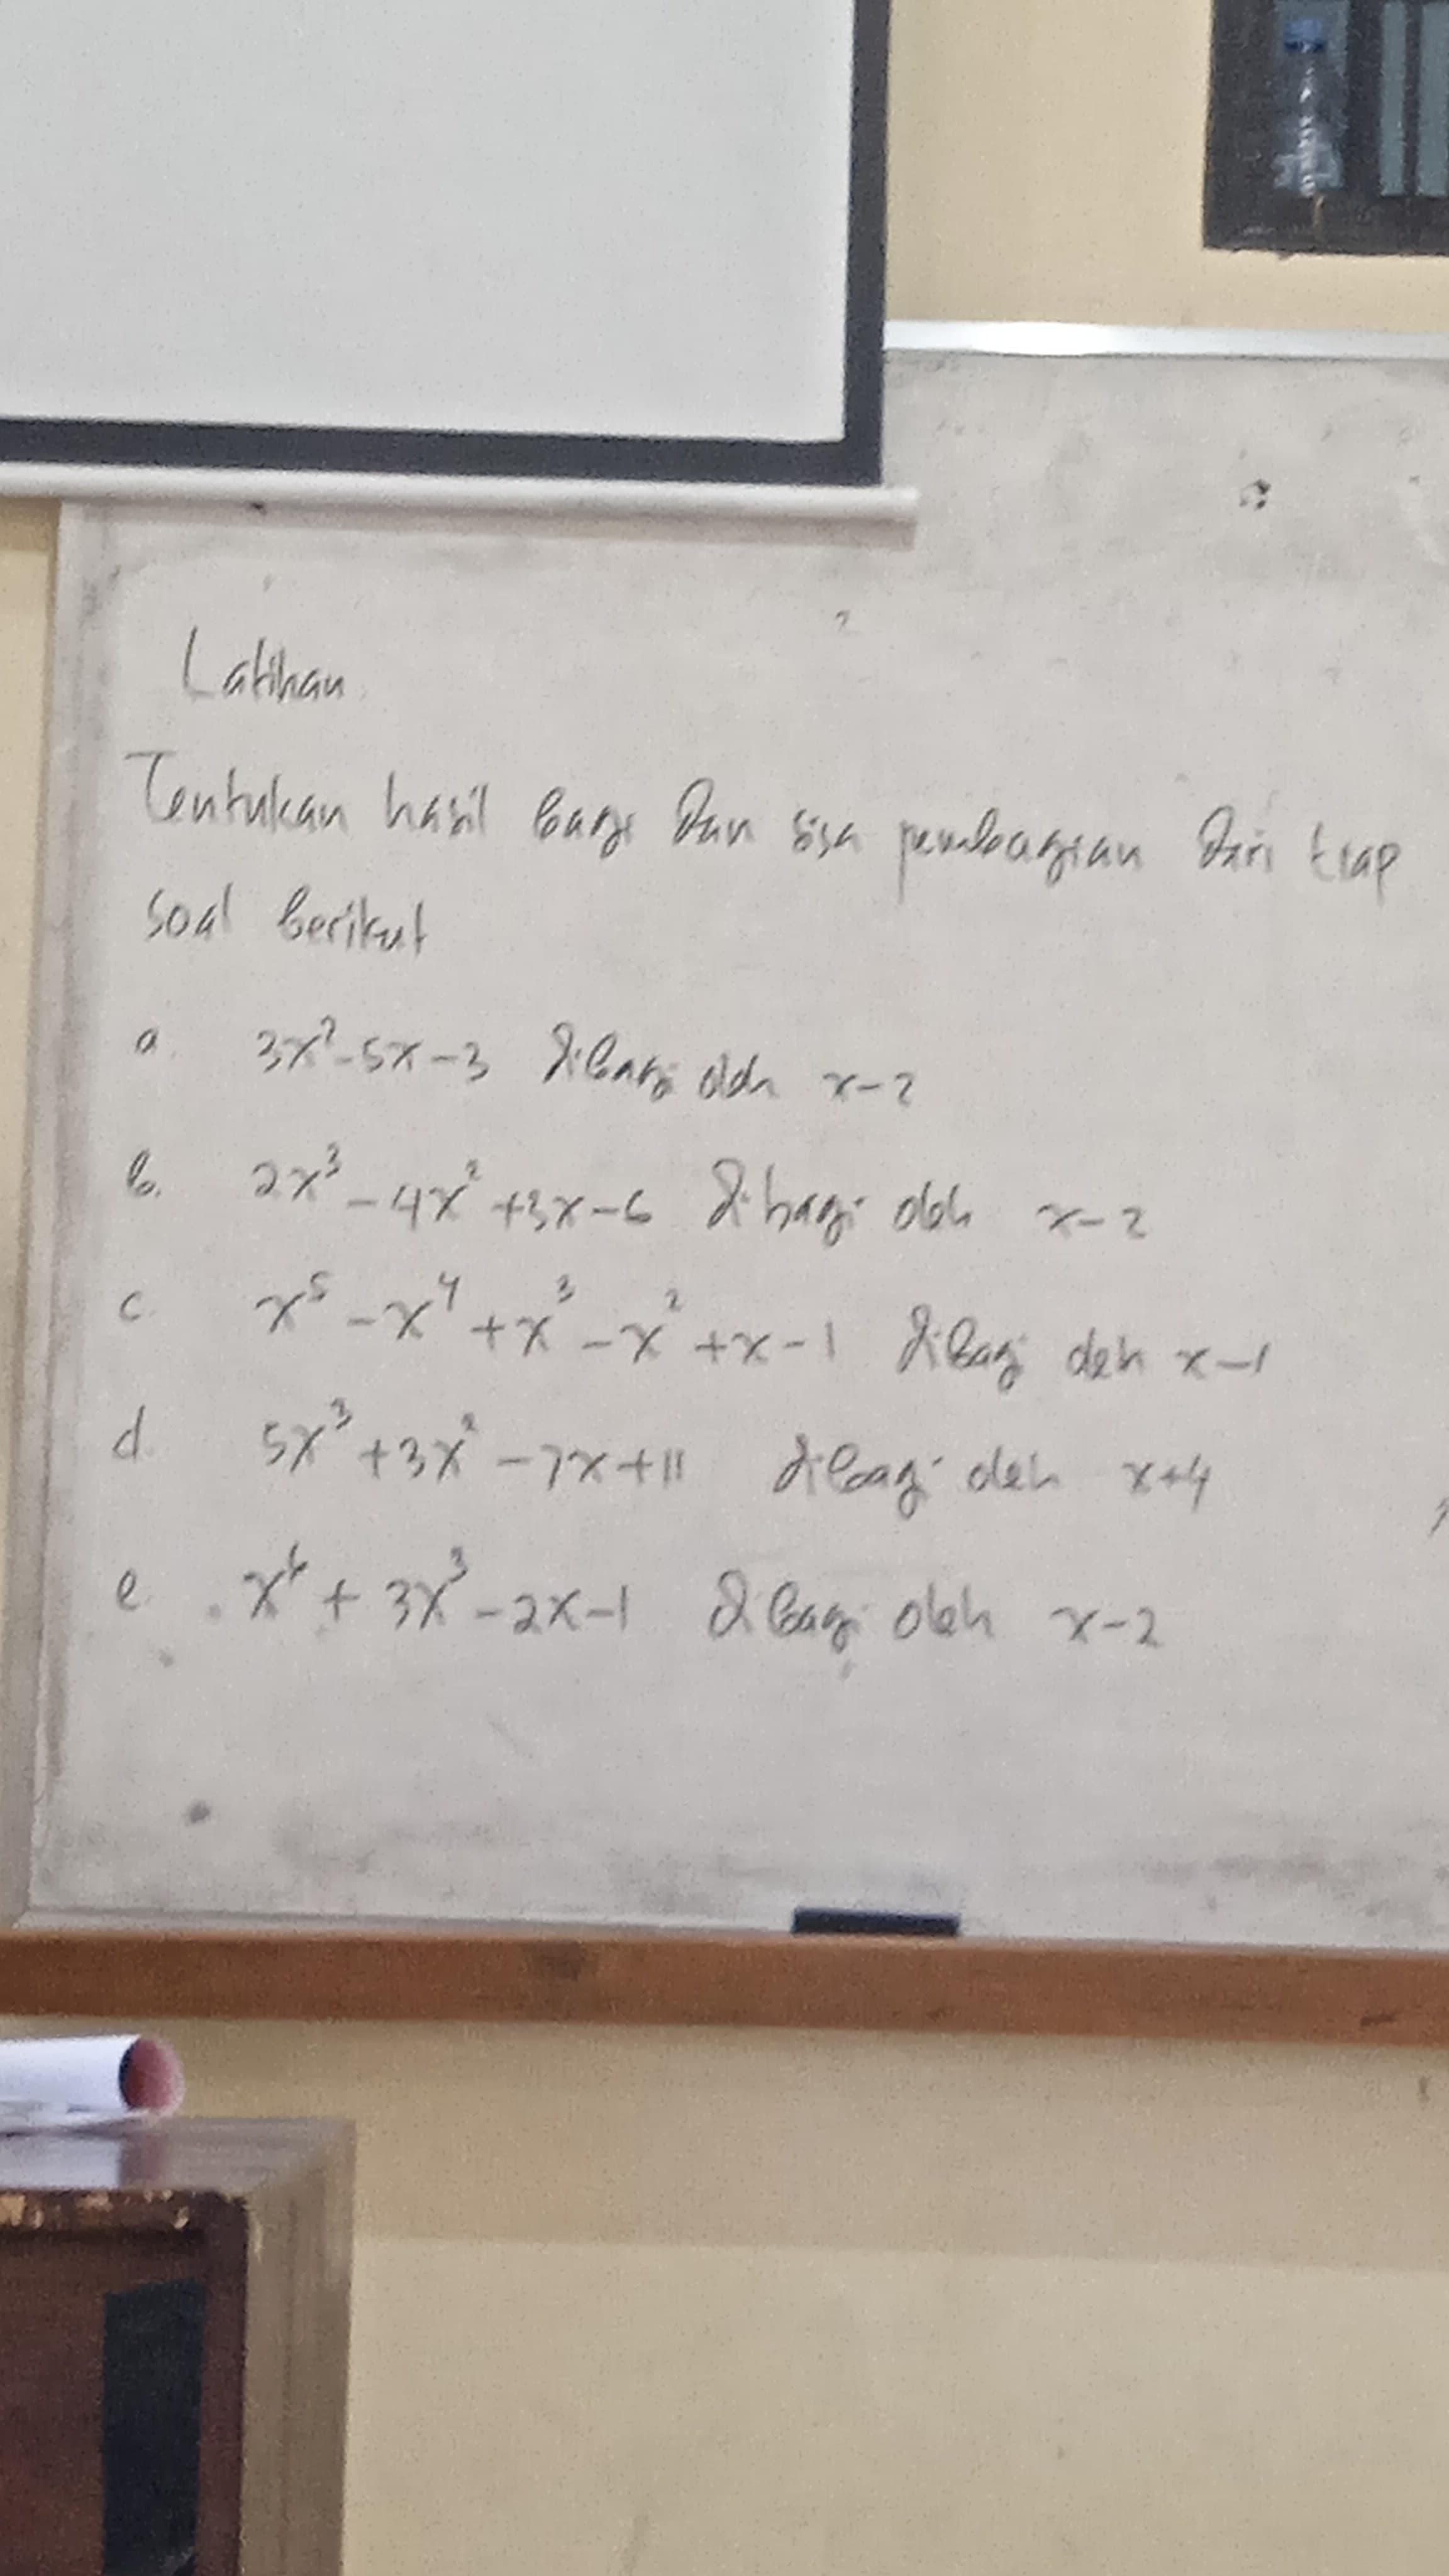 Latihan
Tentukan hasil bagi dan sisa pembagian dari tiap
soal berikut
a. 3x²-5x-3 dibagi oleh x-2
b. 2x³-4x²+3x-6 dibagi oleh x-2
c. x⁵-x⁴+x³-x²+x-1 dibagi oleh x-1
d. 5x³+3x²-7x+11 dibagi oleh x+4
e. + 3x³-2x-1 dibagi oleh x-2